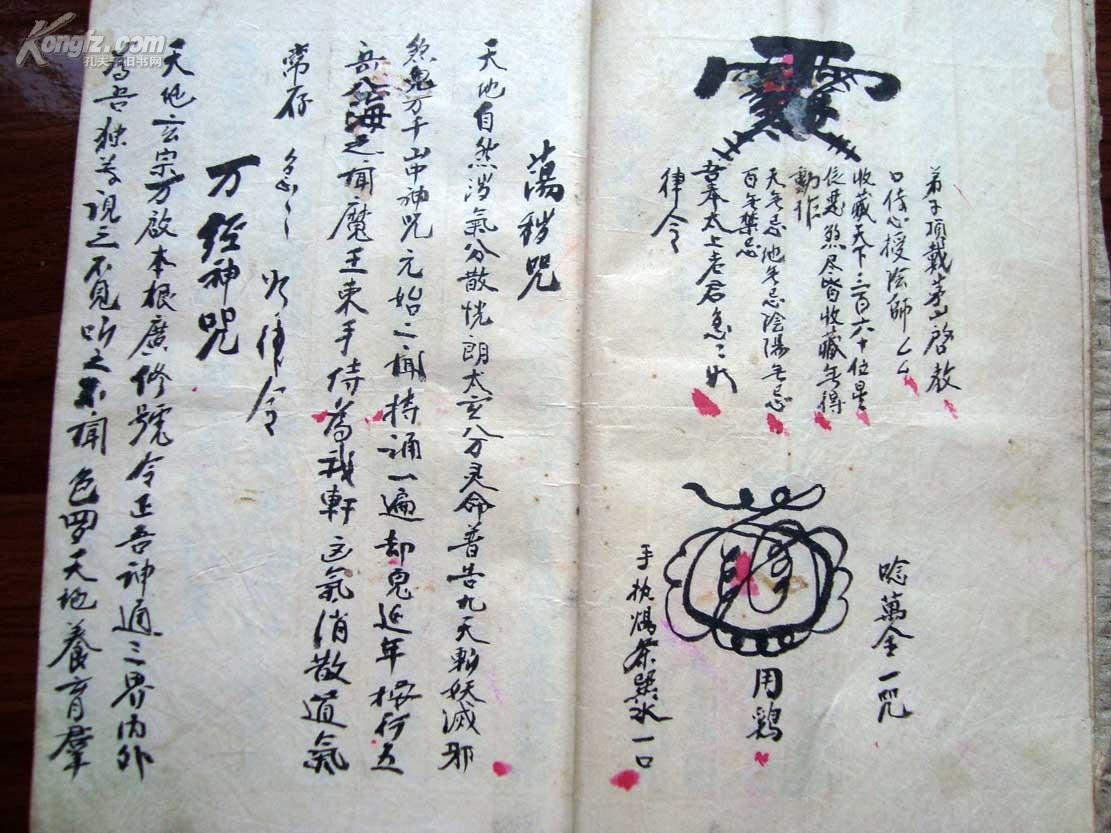 弟子頂戴茅山啓教
口传心授陰師厶厶
收藏天下三百六十位星
辰惡煞尽皆收藏无得
動作
天无忌地无忌陰陽无忌
百无禁忌
吾奉太上老君急〻如
律令
唸萬金一咒
用鷄
手执 茶 水一口
蕩秽咒
天地自然洿氣分散恍朗太玄八分灵命普告九天斬妖滅邪
煞鬼万千山中神咒元始之聞持诵一遍却鬼延年桉行五
岳八海之聞魔王束手侍為我軒这氣消散道氣
常存
急〻 如律令
万经神咒
天地玄宗万啟本根廣修號令正吾神通三界内外
為吾独尊視之不見听之不聞色罗天地養育羣
Kongfz.com
孔夫子旧书网